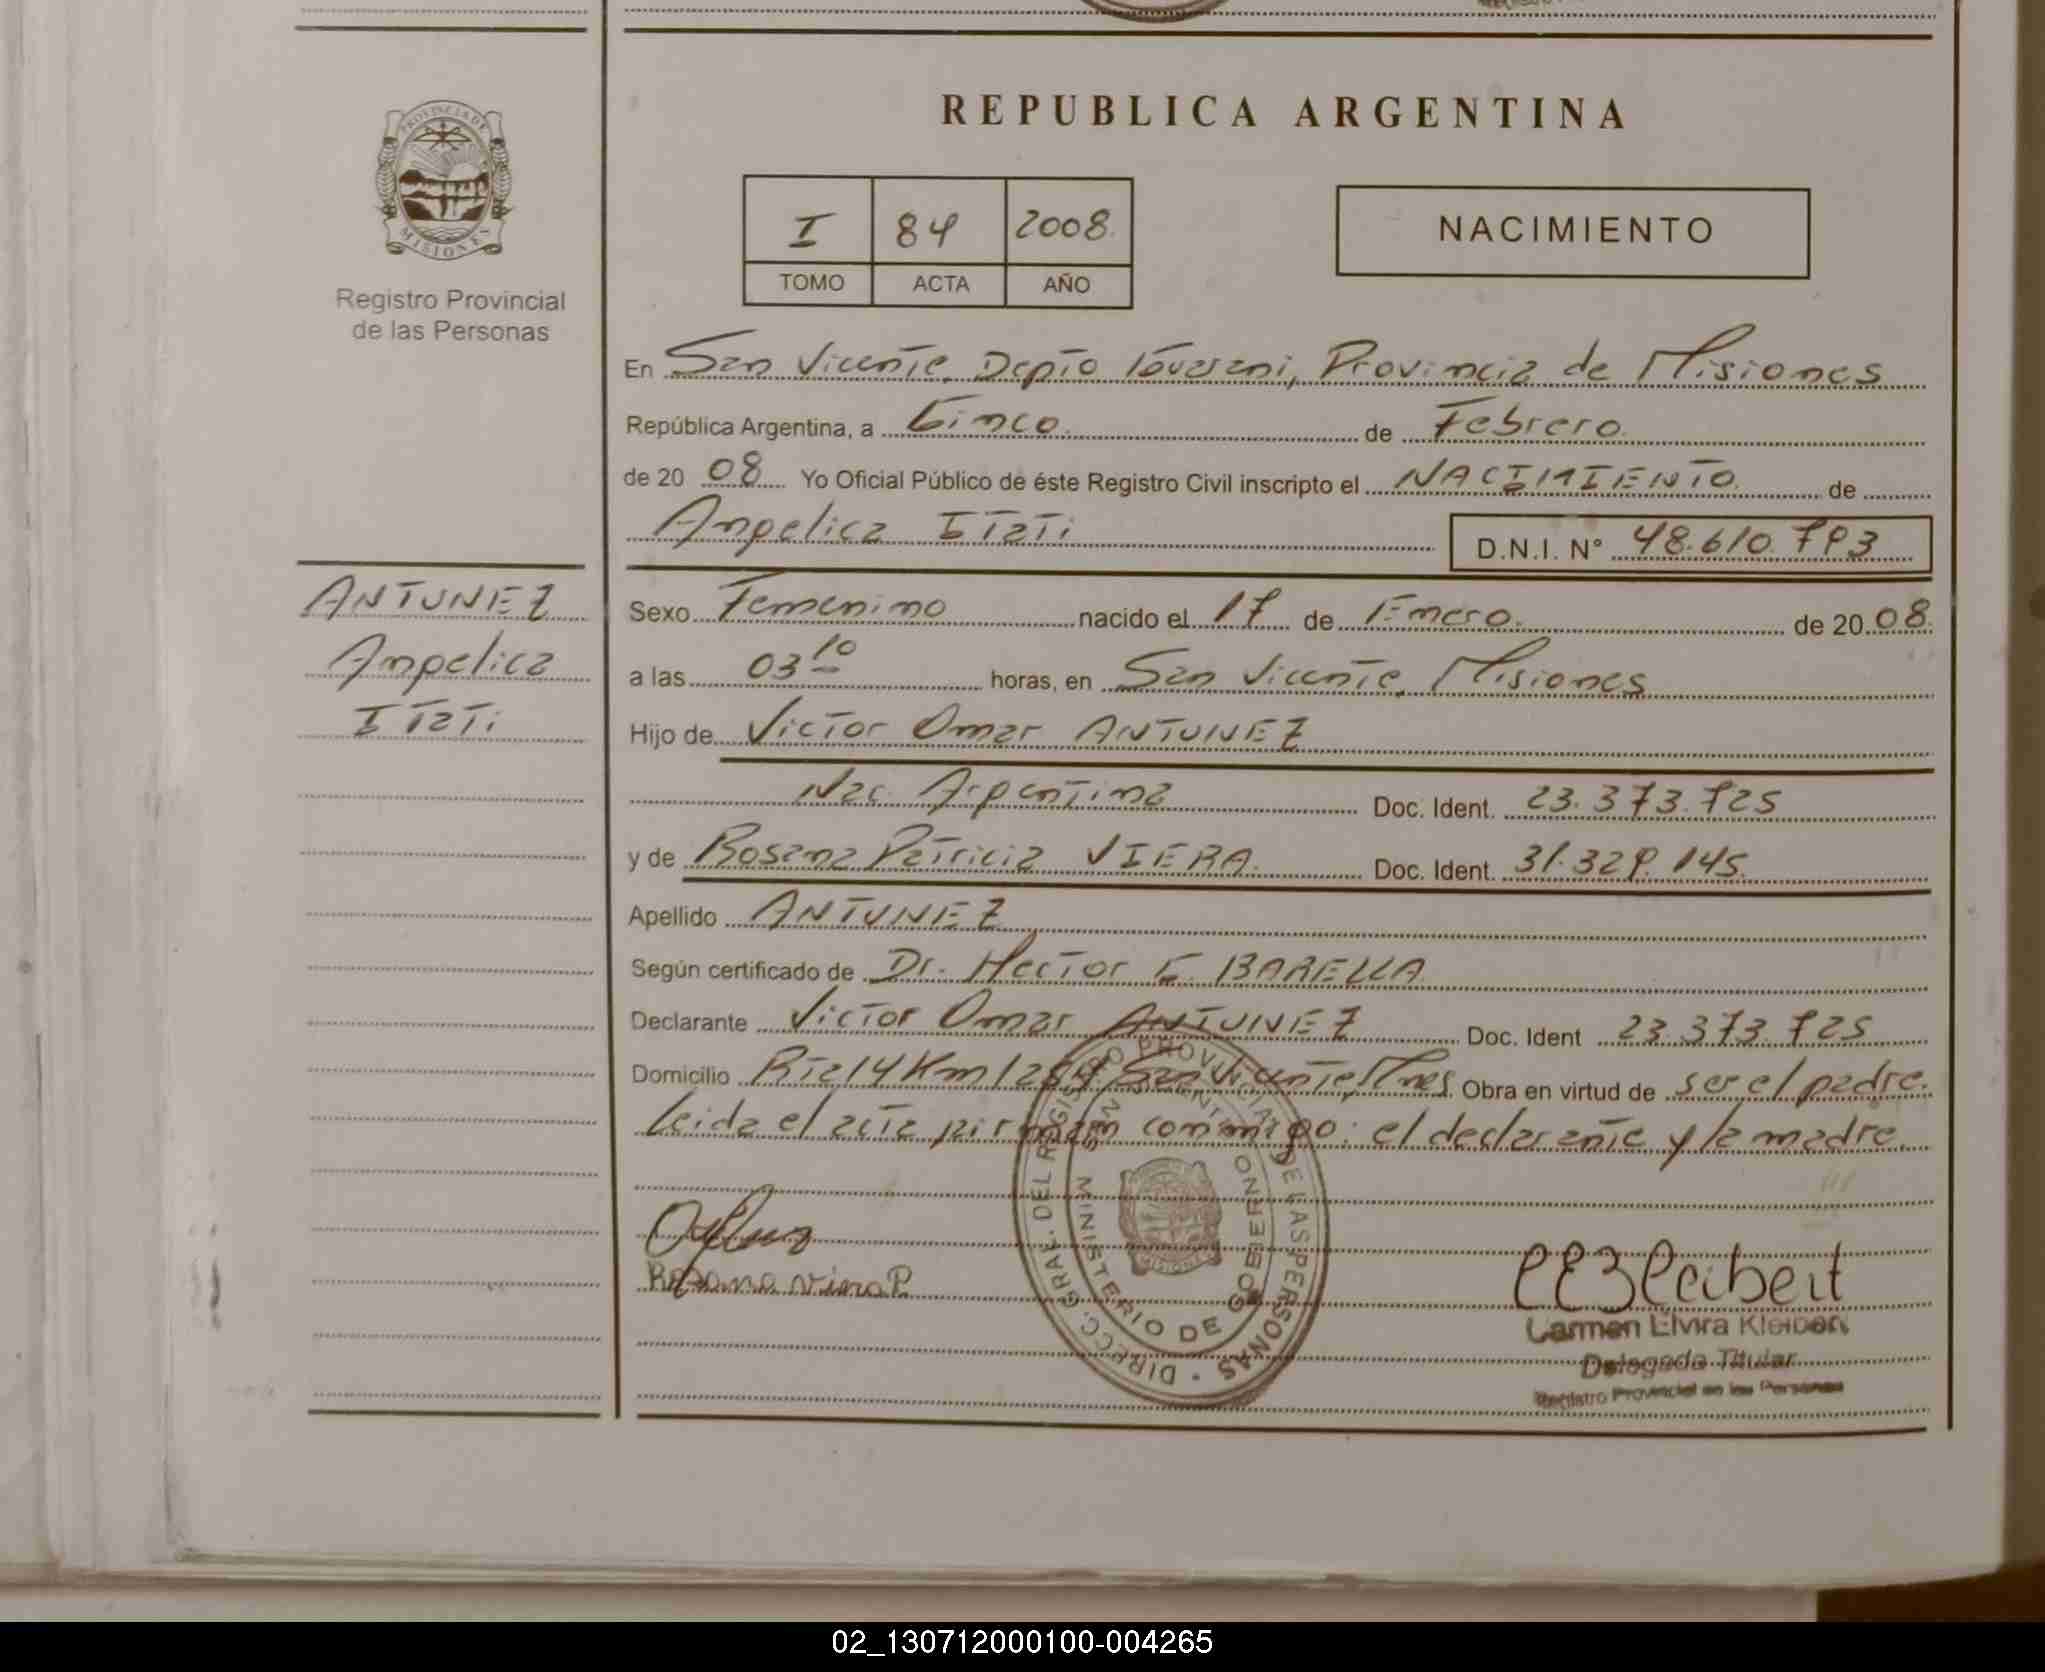 REPUBLICA ARGENTINA
PROVINCIA DE MISIONES
Registro Provincial
de las Personas
I 84 2008
TOMO ACTA AÑO
NACIMIENTO
En San Vicente, Depto Guarani, Provincia de Misiones
República Argentina, a Cinco de Febrero
de 20 08 Yo Oficial Público de éste Registro Civil inscripto el NACIMIENTO de
Angelica Itati D.N.I. N° 48.610.793
ANTUNEZ
Angelica
Itati
Sexo Femenino nacido el 17 de Enero de 20 08
a las 03 10 horas, en San Vicente, Misiones
Hijo de Victor Omar ANTUNEZ
Nac. Argentina Doc. Ident. 23.373.725
y de Rosana Patricia VIERA. Doc. Ident. 31.329.145.
Apellido ANTUNEZ
Según certificado de Dr. Hector E. BARELLA
Declarante Victor Omar ANTUNEZ Doc. Ident 23.373.725
Domicilio Rta 14 Km San Vicente, Mnes. Obra en virtud de ser el padre.
Leida el acta firman conmigo: el declarante y la madre.
Rosana Viera P.
DIRECC. GRAL. DEL REGISTRO PROVINCIAL DE LAS PERSONAS
MINISTERIO DE GOBIERNO
MISIONES
Carmen Elvira Kleibert
Delegada Titular
Registro Provincial de las Personas
02_130712000100-004265